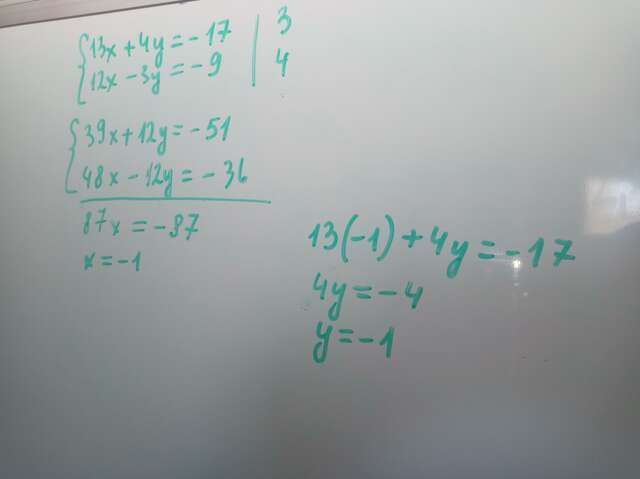 13x + 4y = - 17 | 3
12x - 3y = - 9 | 4
39x + 12y = - 51
48x - 12y = - 36
87x = - 87
x = - 1
13(-1) + 4y = - 17
4y = - 4
y = - 1